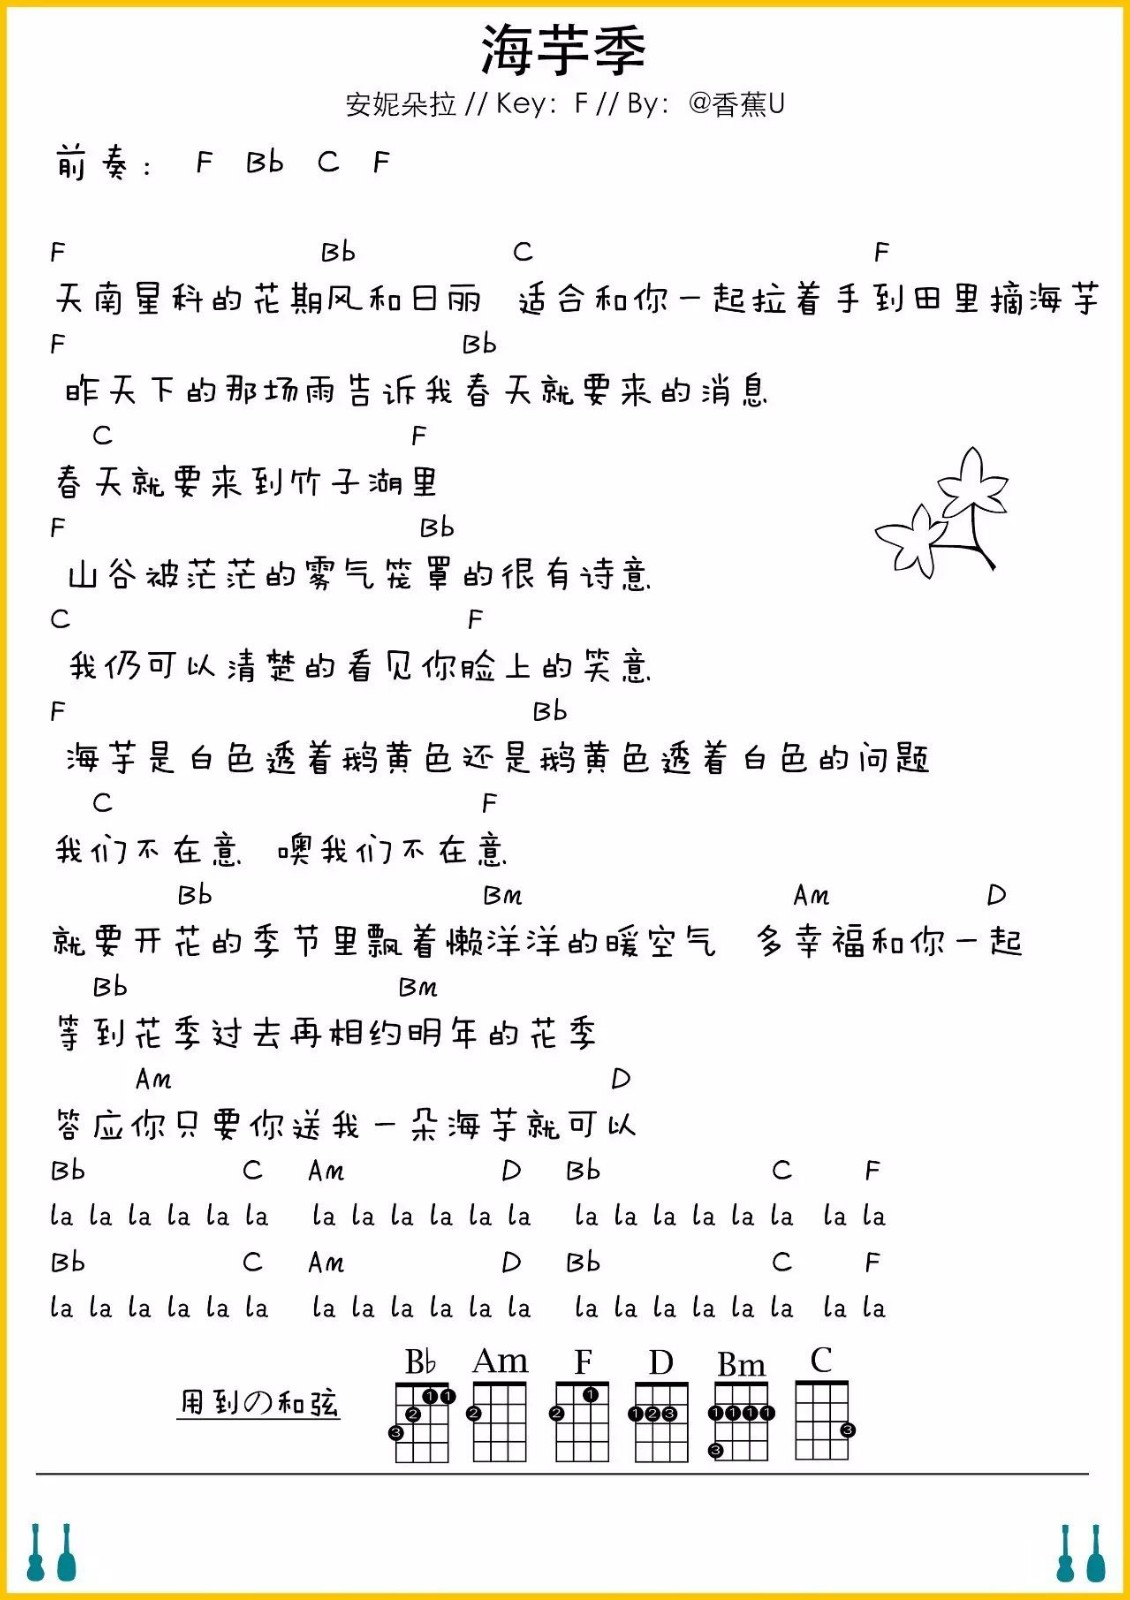 海芋季
安妮朵拉 // Key：F // By：@香蕉U
前奏： F Bb C F
F Bb C F
天南星科的花期风和日丽 适合和你一起拉着手到田里摘海芋
F Bb
昨天下的那场雨告诉我春天就要来的消息
C F
春天就要来到竹子湖里
F Bb
山谷被茫茫的雾气笼罩的很有诗意
C F
我仍可以清楚的看见你脸上的笑意
F Bb
海芋是白色透着鹅黄色还是鹅黄色透着白色的问题
C F
我们不在意 噢我们不在意
Bb Bm Am D
就要开花的季节里飘着懒洋洋的暖空气 多幸福和你一起
Bb Bm
等到花季过去再相约明年的花季
Am D
答应你只要你送我一朵海芋就可以
Bb C Am D Bb C F
la la la la la la la la la la la la la la la la la la la la
Bb C Am D Bb C F
la la la la la la la la la la la la la la la la la la la la
B♭ Am F D Bm C
用到の和弦
1 1 2 3 2 1 2 1 2 3 1 1 1 1 3 3